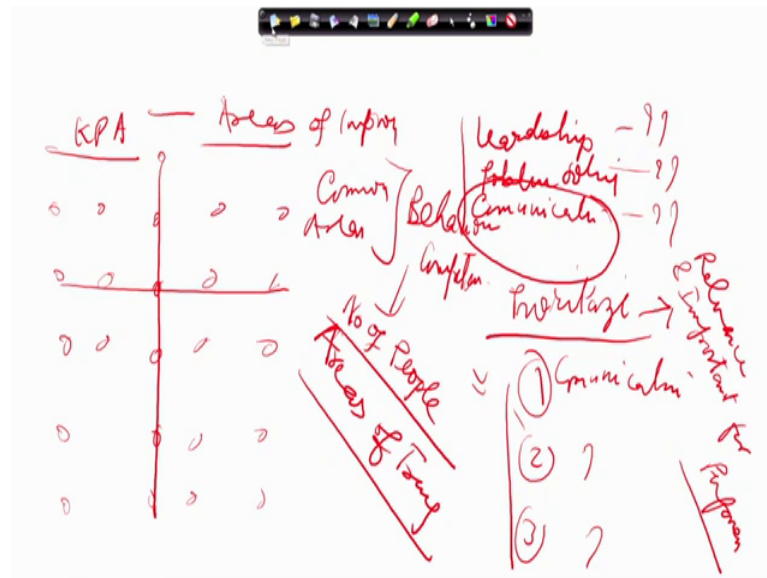 KPA — Areas of Improv
Common
Areas
Behaviour
Competen.
No of People
Areas of
Leadership - ??
Problem Solvin - ??
Comunicatn - ??
Prioritize →
Relevance
& Important for
Perform
① Comunicatn
② ?
③ ?